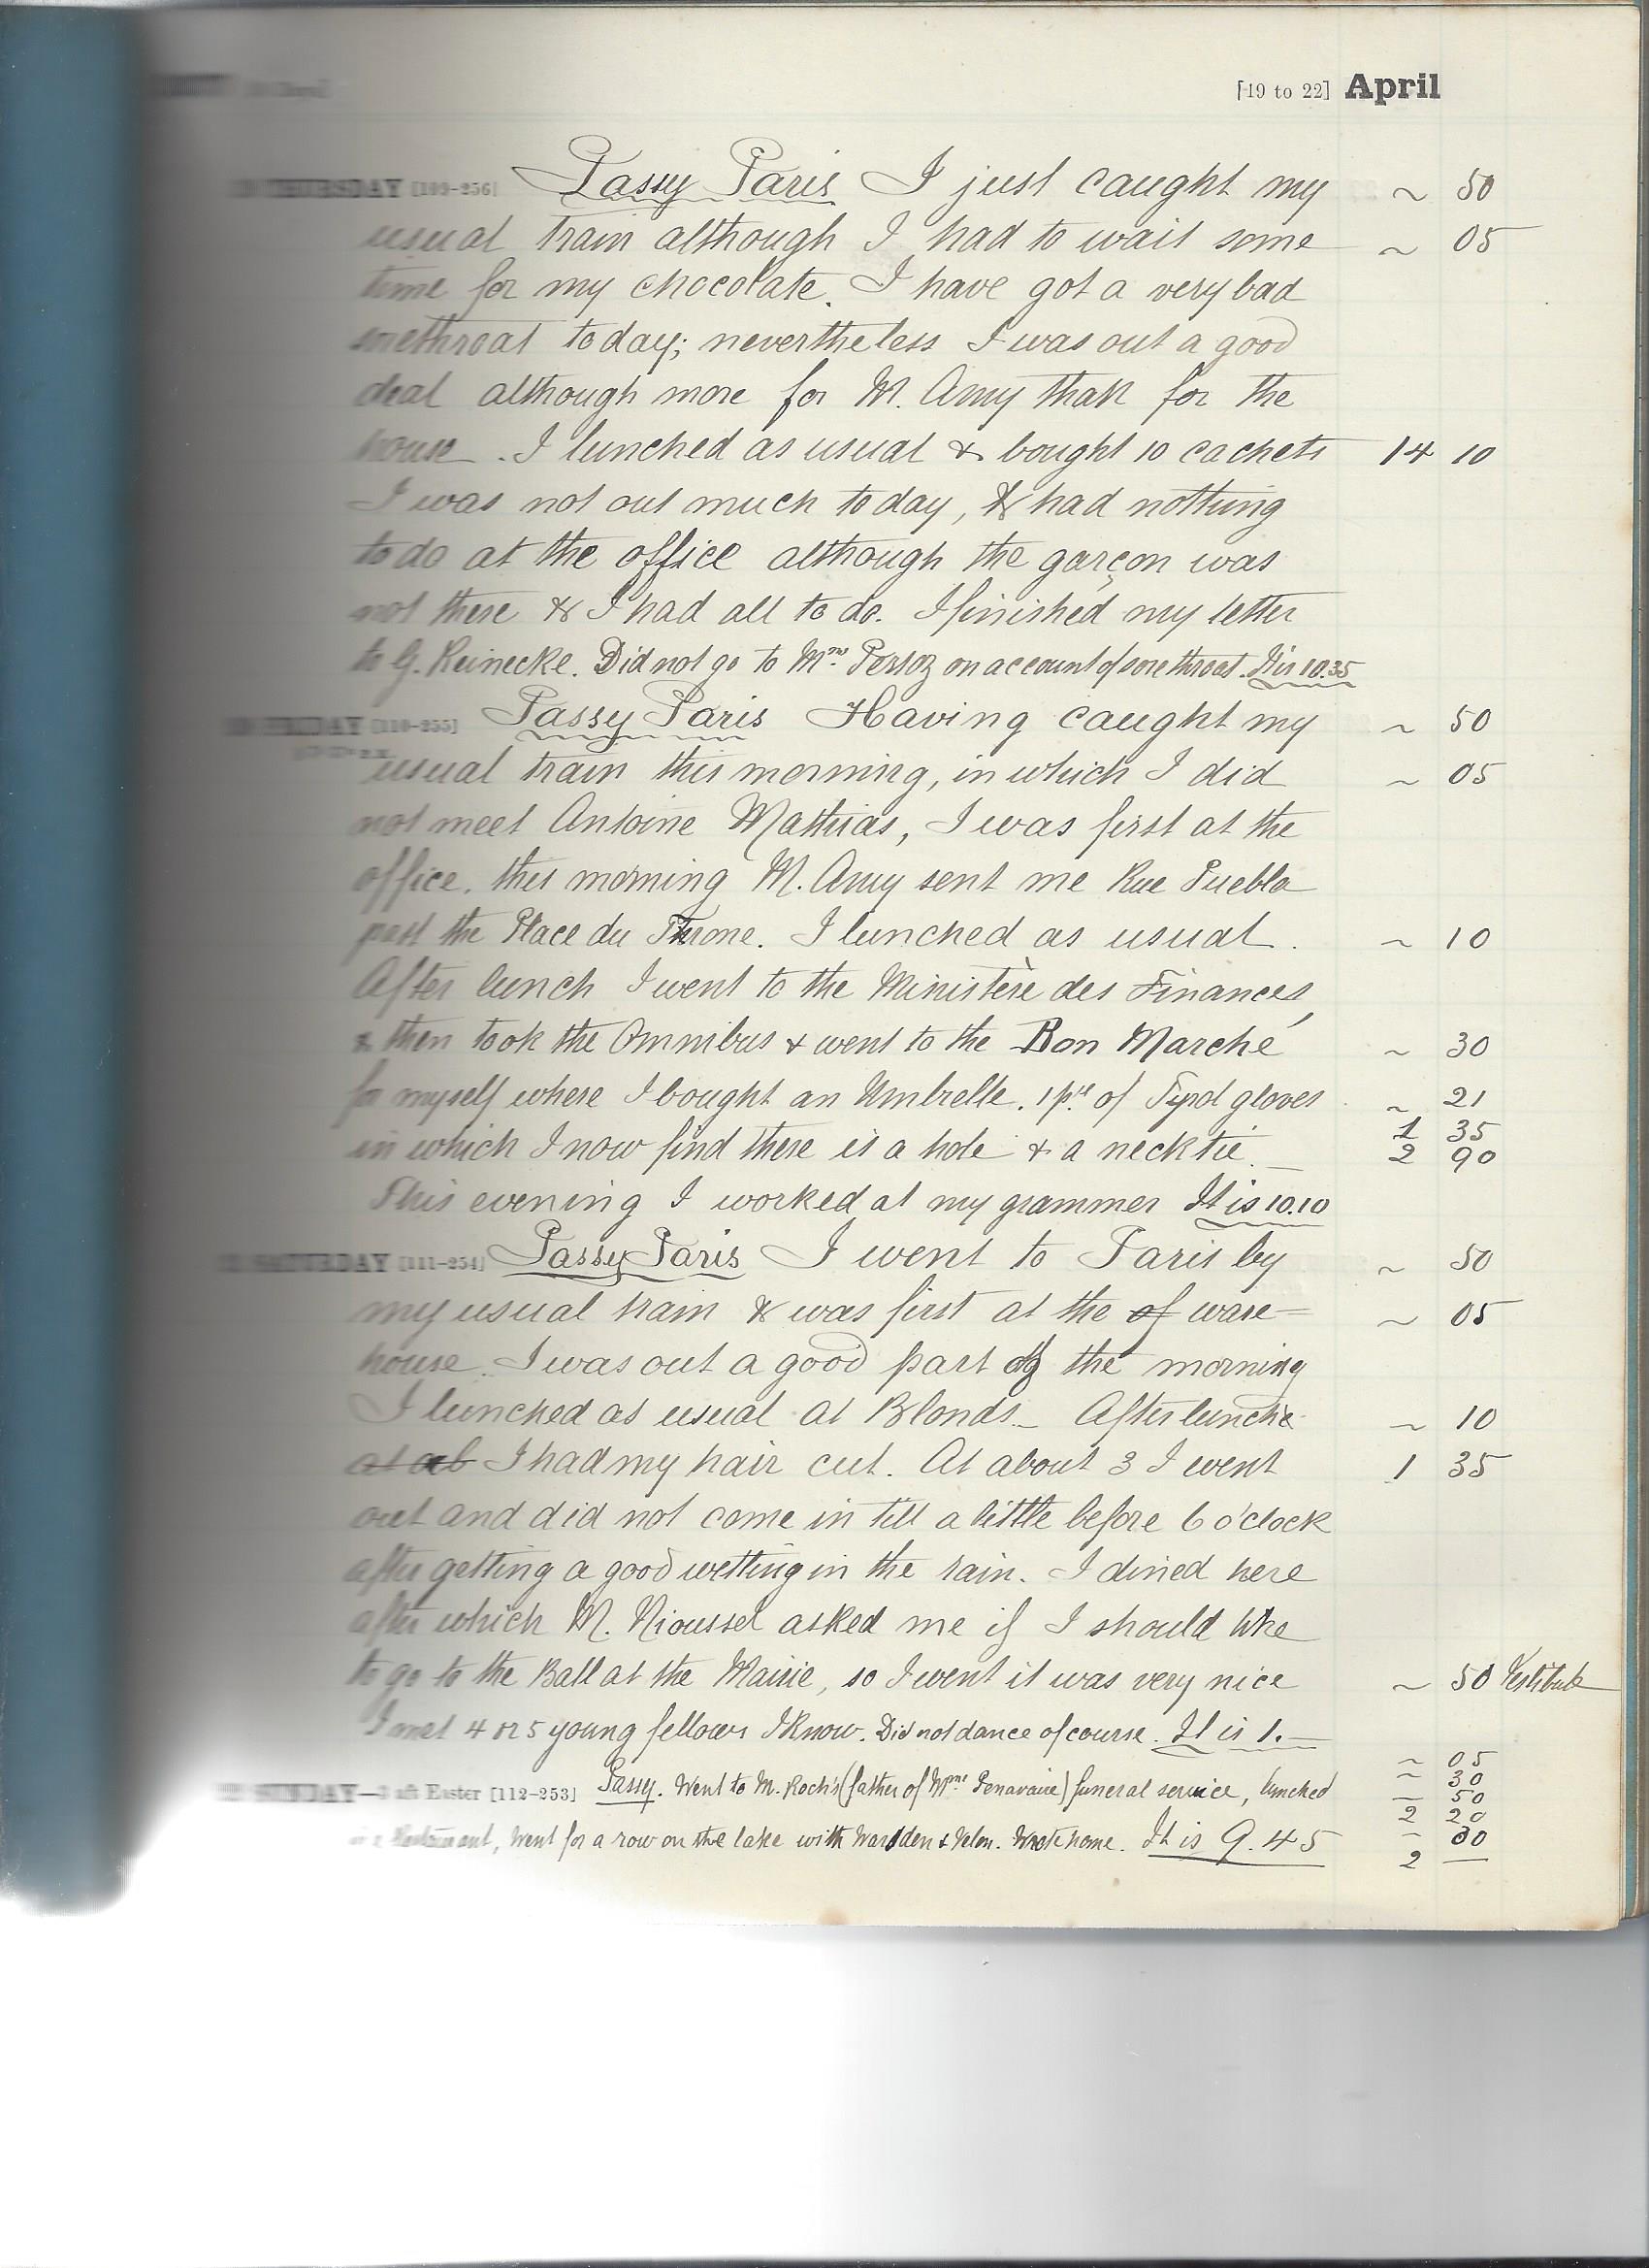 [19 to 22] April
THURSDAY [109-256] Passy Paris I just caught my ~ 50
usual train although I had to wait some ~ 05
time for my chocolate. I have got a very bad
sorethroat today; nevertheless I was out a good
deal although more for M. Amy than for the
house. I lunched as usual & bought 10 cachets 14 10
I was not out much today, & had nothing
to do at the office although the garçon was
not there & I had all to do. I finished my letter
to G. Reinecke. Did not go to Mme on account of sore throat. It is 10.35
FRIDAY [110-255] Passy Paris Having caught my ~ 50
usual train this morning, in which I did ~ 05
not meet Antoine Mathias, I was first at the
office. this morning M. Amy sent me Rue Puebla
past the Place du Throne. I lunched as usual. ~ 10
After lunch I went to the Ministère des Finances,
& then took the Omnibus & went to the Bon Marché ~ 30
for myself where I bought an Umbrelle. 1 pr. of gloves ~ 21
in which I now find there is a hole & a necktie. 1 35
2 90
This evening I worked at my grammer It is 10.10
SATURDAY [111-254] Passy Paris I went to Paris by ~ 50
my usual train & was first at the of ware- ~ 05
house. I was out a good part of the morning
I lunched as usual at Blonds_ After lunch ~ 10
at I had my hair cut. At about 3 I went 1 35
out and did not come in till a little before 6 o'clock
after getting a good wetting in the rain. I dined here
after which M. Nioussel asked me if I should like
to go to the Ball at the Mairie, so I went it was very nice ~ 50
I met 4 or 5 young fellows I know. Did not dance of course. It is 1.—
~ 05
~ 30
SUNDAY—3 aft Easter [112-253] Passy. Went to M. Roch's (father of Mme Penavaire) funeral service, lunched — 50
2 20
Restaurant, went for a row on the lake with & Wrote home. It is 9.45 — 30
2 —